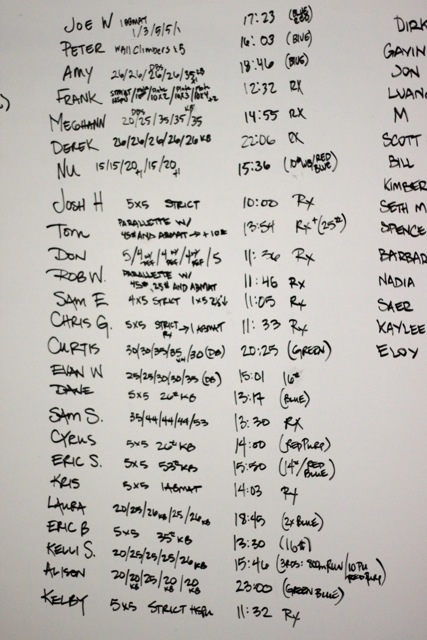 JOE W 1 ABMAT 1/3/5/5/1 17:23 (BLUE
PETER Wall Climbers 15 16:03 (BLUE)
AMY 26/26/26/26/35 18:46 (BLUE)
FRANK 12:32 RX
MEGHANN 20/25/35/35/35 14:55 RX
DEREK 26/26/26/26/26 KB 22:06 RX
NU 15/15/20/15/20 15:36 RED/BLUE)
JOSH H 5x5 STRICT 10:00 Rx
Tom PARALLETTE W/ 45# AND ABMAT → +10# 13:54 Rx+ (25#)
DON 11:36 Rx
ROB W. PARALLETTE W/ 45#, 25# AND ABMAT 11:46 Rx
SAM E 4x5 STRICT 11:05 Rx
CHRIS G. 5x5 STRICT → 1 ABMAT 11:33 Rx
CURTIS 30/30/35/35/30 (DB) 20:25 (GREEN)
EVAN W 25/25/30/30/35 (DB) 15:01 16#
DANE 5x5 26# KB 13:17 (BLUE)
SAM S. 35/44/44/44/53 13:30 RX
CYRUS 5x5 26# KB 14:00 (RED PURP)
ERIC S. 5x5 53# KB 15:50 (14#/RED BLUE)
KRIS 5x5 1 ABMAT 14:03 Rx
LAURA 20/25/26KB/25/26KB 18:45 (2x BLUE)
ERIC B 5x5 35# KB 13:30 (16#)
KELLI S. 20/25/25/25/26KB 15:46 (3RDS: 800m RUN/10 PU RED PURP)
ALISON 20/20KB/25/20KB/20KB 23:00 (GREEN BLUE)
KELBY 5x5 STRICT HSPU 11:32 Rx
DIRK
GAVIN
JON
LUAN
M
SCOTT
BILL
KIMBER
SETH M
SPENCE
BARBAR
NADIA
SAER
KAYLEE
ELOY